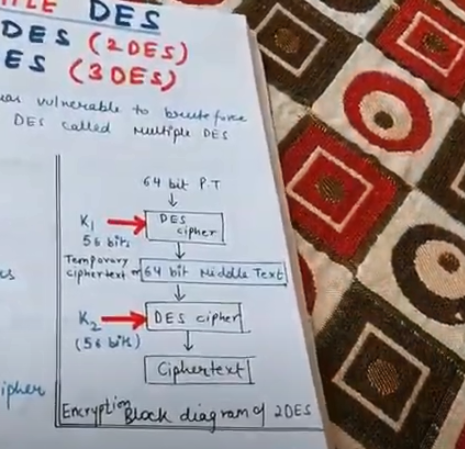 DES
DES (2DES)
ES (3DES)
was vulnerable to bruteforce
DES called Multiple DES
64 bit P.T
K1
56 bits
DES cipher
Temporary ciphertext or
64 bit Middle Text
K2
(56 bits)
DES cipher
Ciphertext
ipher
Encryption Block diagram of 2DES